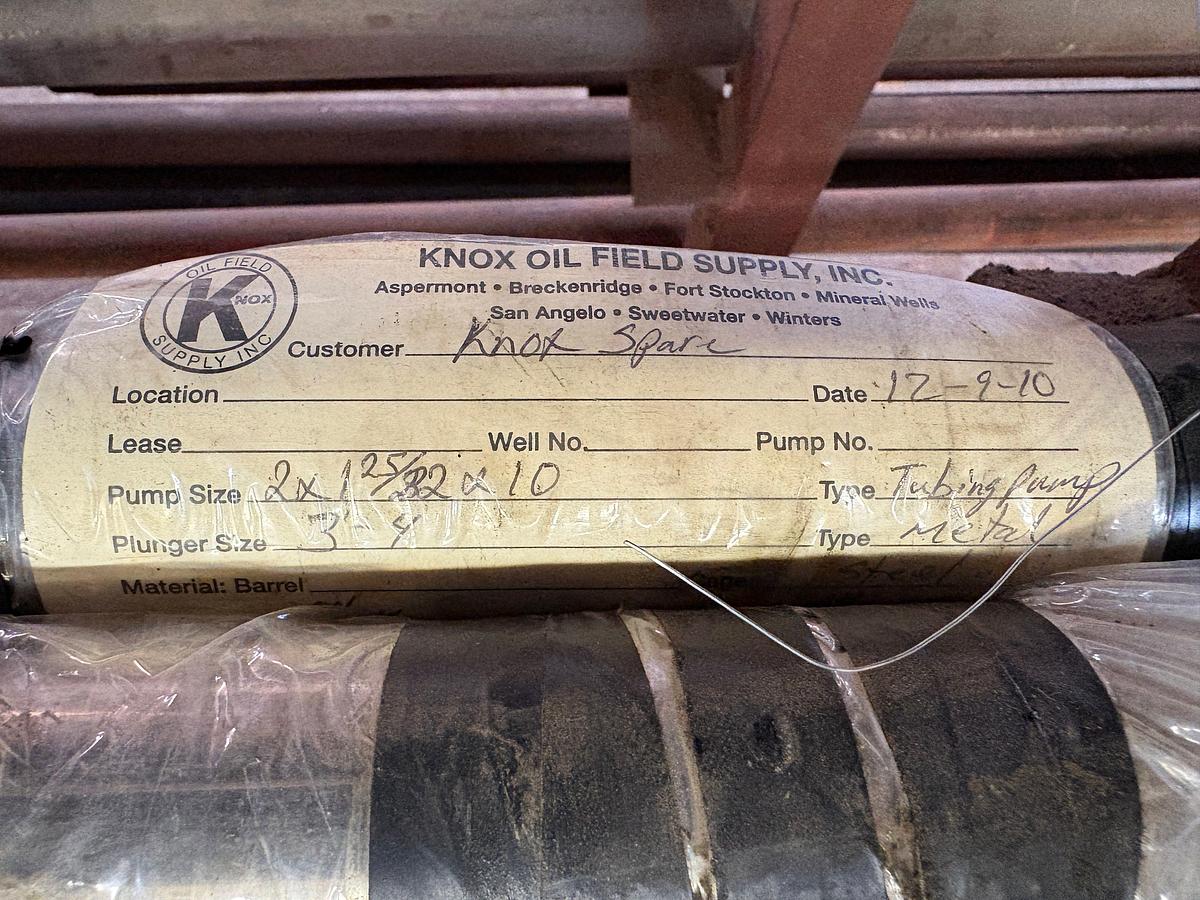 KNOX OIL FIELD SUPPLY, INC.
Aspermont • Breckenridge • Fort Stockton • Mineral Wells
San Angelo • Sweetwater • Winters
OIL FIELD
KNOX
SUPPLY INC
Customer Knox Spare
Location Date 12-9-10
Lease Well No. Pump No.
Pump Size 2 x 1 25/32 x 10 Type Tubing pump
Plunger Size 3'-4 Type Metal
Material: Barrel Steel